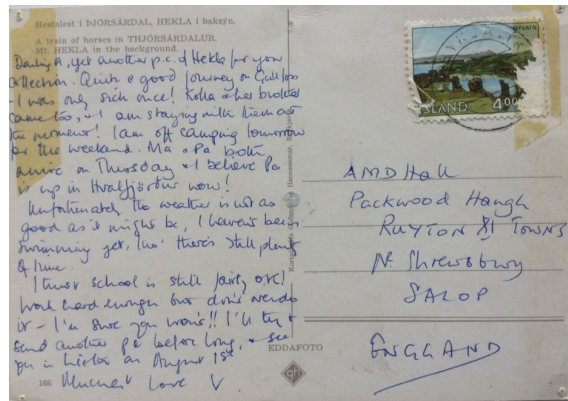 Hestalest í ÞJÓRSÁRDAL, HEKLA í baksýn.
A train of horses in THJÓRSÁRDALUR.
Mt. HEKLA in the background.
Darling A, yet another p.c. of Hekla for your
collection. Quite a good journey on Gullfoss
- I was only sick once! Kolla & her brother
came too, & I am staying with them at
the moment! I am off camping tomorrow
for the weekend. Ma & Pa both
arrive on Thursday & I believe Pa
is up in Hvalfjördur now!
Unfortunately the weather is not as
good as it might be, I haven't been
swimming yet, tho' there's still plenty
of time.
I trust school is still fairly O.K!
Work hard enough but don't overdo
it - I'm sure you won't!! I'll try &
send another pc before long, & see
you in on August 1st
Muchest Love V
166
EDDAFOTO
MÝVATN
ÍSLAND 4.00
AMDHall
Packwood Haugh
RUYTON XI TOWNS
Nr. Shrewsbury
SALOP
ENGLAND